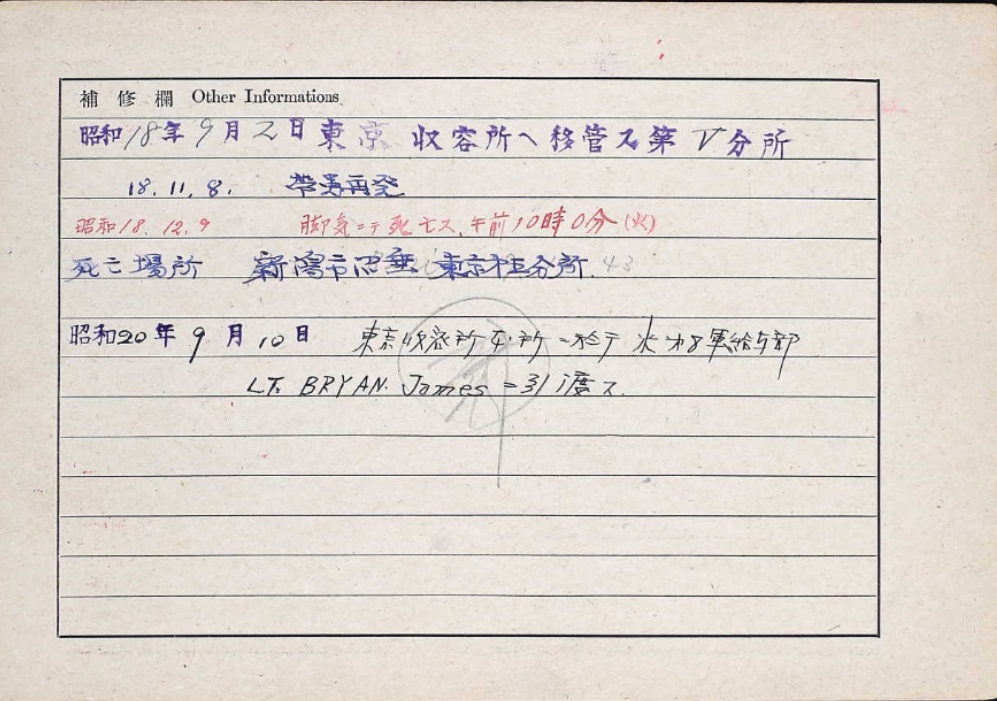 補修欄 Other Informations
昭和18年9月2日東京 収容所ヘ移管ス第V分所
18.11.8. 再発
昭和18.12.9 脚気ニテ死亡ス 午前10時0分(火)
死亡場所 新潟市沼垂 東京 分所 43
昭和20年9月10日 東京収容所本所ニ於テ 軍給与部
LT. BRYAN. James ニ引渡ス.